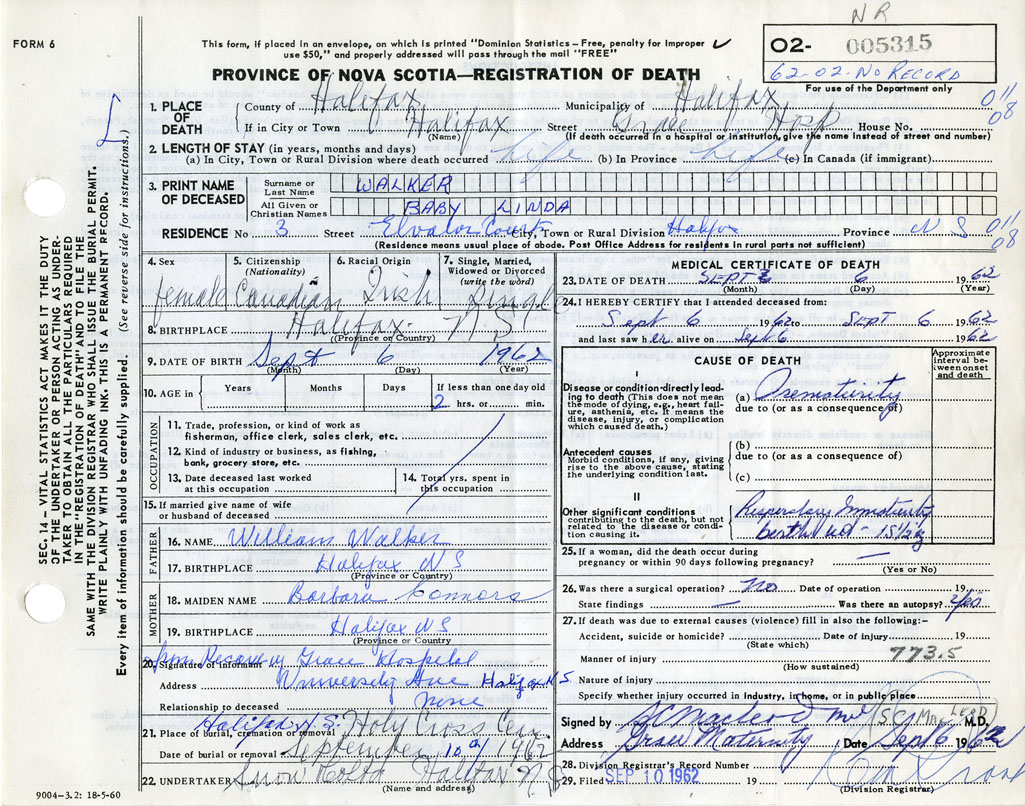 NR
FORM 6
This form, if placed in an envelope, on which is printed "Dominion Statistics—Free, penalty for improper
use $50," and properly addressed will pass through the mail "FREE"
O2- 005315
62-02-No Record
For use of the Department only
PROVINCE OF NOVA SCOTIA—REGISTRATION OF DEATH
011
08
1. PLACE OF DEATH
County of Halifax Municipality of Halifax
If in City or Town Halifax Street Grace Hosp House No.
(Name) (If death occurred in a hospital or institution, give the name instead of street and number)
2. LENGTH OF STAY (in years, months and days)
(a) In City, Town or Rural Division where death occurred life (b) In Province life (c) In Canada (if immigrant)
3. PRINT NAME OF DECEASED
Surname or Last Name WALKER
All Given or Christian Names BABY LINDA
RESIDENCE No 3 Street Court City, Town or Rural Division Halifax Province N S
011
08
(Residence means usual place of abode. Post Office Address for residents in rural parts not sufficient)
4. Sex female
5. Citizenship (Nationality) Canadian
6. Racial Origin Irish
7. Single, Married, Widowed or Divorced (write the word) Single
8. BIRTHPLACE Halifax N S
(Province or Country)
9. DATE OF BIRTH Sept 6 1962
(Month) (Day) (Year)
10. AGE in Years Months Days If less than one day old
2 hrs. or min.
OCCUPATION
11. Trade, profession, or kind of work as
fisherman, office clerk, sales clerk, etc.
12. Kind of industry or business, as fishing,
bank, grocery store, etc.
13. Date deceased last worked
at this occupation
14. Total yrs. spent in
this occupation
15. If married give name of wife
or husband of deceased
FATHER
16. NAME William Walker
17. BIRTHPLACE Halifax N S
(Province or Country)
MOTHER
18. MAIDEN NAME Barbara Connors
19. BIRTHPLACE Halifax N S
(Province or Country)
20. Signature of informant Recovery Grace Hospital
Address University Ave Halifax N S
Relationship to deceased none
21. Place of burial, cremation or removal Halifax N.S. Holy Cross Cem
Date of burial or removal September 10th 1962
22. UNDERTAKER Snow Halifax N S
(Name and address)
9004—3.2: 18-5-60
MEDICAL CERTIFICATE OF DEATH
23. DATE OF DEATH SEPT 6 1962
(Month) (Day) (Year)
24. I HEREBY CERTIFY that I attended deceased from:
Sept 6 1962 to SEPT 6 1962
and last saw her alive on Sept 6 1962
CAUSE OF DEATH
Approximate interval between onset and death
I
Disease or condition directly leading to death (This does not mean
the mode of dying, e.g., heart failure, asthenia, etc. It means the
disease, injury, or complication
which caused death.)
(a) Prematurity
due to (or as a consequence of)
Antecedent causes
Morbid conditions, if any, giving
rise to the above cause, stating
the underlying condition last.
(b)
due to (or as a consequence of)
(c)
II
Other significant conditions
contributing to the death, but not
related to the disease or condition causing it.
Respiratory Immaturity
birth
25. If a woman, did the death occur during
pregnancy or within 90 days following pregnancy? —
(Yes or No)
26. Was there a surgical operation? No Date of operation 19
State findings — Was there an autopsy?
27. If death was due to external causes (violence) fill in also the following:-
Accident, suicide or homicide? Date of injury 19
(State which)
773.5
Manner of injury
(How sustained)
Nature of injury
Specify whether injury occurred in industry, in home, or in public place
Signed by SC MacLeod M.D. S C MacLEOD
Address Grace Maternity Date Sept 6 1962
28. Division Registrar's Record Number
29. Filed SEP 10 1962 19
(Division Registrar)
SEC. 14—VITAL STATISTICS ACT MAKES IT THE DUTY
OF THE UNDERTAKER OR PERSON ACTING AS UNDER-
TAKER TO OBTAIN ALL THE PARTICULARS REQUIRED
IN THE "REGISTRATION OF DEATH" AND TO FILE THE
SAME WITH THE DIVISION REGISTRAR WHO SHALL ISSUE THE BURIAL PERMIT.
WRITE PLAINLY WITH UNFADING INK. THIS IS A PERMANENT RECORD.
Every item of information should be carefully supplied. (See reverse side for instructions.)